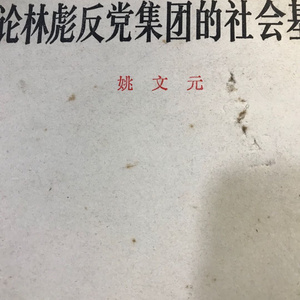 论林彪反党集团的社会基
姚文元